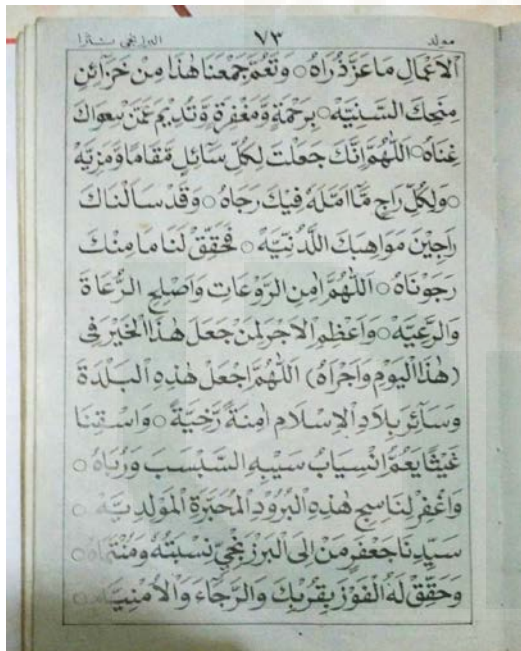 مولد ٧٣ البرزنجي نثرا
اَلْاَعْمَالِ مَاعَزَّذُرَاهُ ○ وَتَعُمَّ جَمْعَنَا هٰذَا مِنْ خَزَآئِنِ
مِنَحِكَ السَّنِيَّهْ ○ بِرَحْمَةٍ وَّمَغْفِرَةٍ وَّتُدِيْمَ عَمَّنْ سِوَاكَ
غِنَاهُ ○ اَللّٰهُمَّ اِنَّكَ جَعَلْتَ لِكُلِّ سَآئِلٍ مَّقَامًا وَّمَزِيَّهْ
○ وَلِكُلِّ رَاجٍ مَّااَمَّلَهٗ فِيْكَ رَجَاهُ ○ وَقَدْ سَاَلْنَاكَ
رَاجِيْنَ مَوَاهِبَكَ اللَّدُنِّيَّهْ ○ فَحَقِّقْ لَنَا مَامِنْكَ
رَجَوْنَاهُ ○ اَللّٰهُمَّ اٰمِنِ الرَّوْعَاتِ وَاَصْلِحِ الرُّعَاةَ
وَالرَّعِيَّهْ ○ وَاَعْظِمِ الْاَجْرَ لِمَنْ جَعَلَ هٰذَا الْخَيْرَ فِى
(هٰذَا الْيَوْمِ وَاَجْرَاهُ) اَللّٰهُمَّ اجْعَلْ هٰذِهِ الْبَلْدَةَ
وَسَآئِرَ بِلَادِ الْاِسْلَامِ اٰمِنَةً رَّخِيَّةً ○ وَاسْقِنَا
غَيْثًا يَعُمُّ انْسِيَابُ سَيْبِهِ السَّبْسَبَ وَرُبَاهُ ○
وَاغْفِرْ لِنَاسِجِ هٰذِهِ الْبُرُوْدِ الْمُحَبَّرَةِ الْمَوْلِدِيَّهْ ○
سَيِّدِنَا جَعْفَرٍ مَنْ اِلَى الْبَرْزَنْجِيِّ نِسْبَتُهٗ وَمُنْتَمَاهُ ○
وَحَقِّقْ لَهُ الْفَوْزَ بِقُرْبِكَ وَالرَّجَآءَ وَالْاُمْنِيَّهْ ○